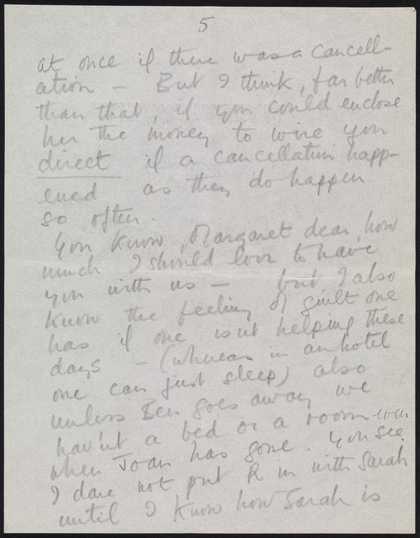 5
at once if there was a cancell-
ation – But I think, far better
than that, if you could enclose
her the money to wire you
direct if a cancellation happ-
ened as they do happen
so often.
You know, Margaret dear, how
much I should love to have
you with us – but I also
know the feeling of guilt one
has if one isnt helping these
days – (whereas in an hotel
one can just sleep) also
unless Ben goes away we
hav'nt a bed or a room even
when Joan has gone. You see
I dare not put R in with Sarah
until I know how Sarah is